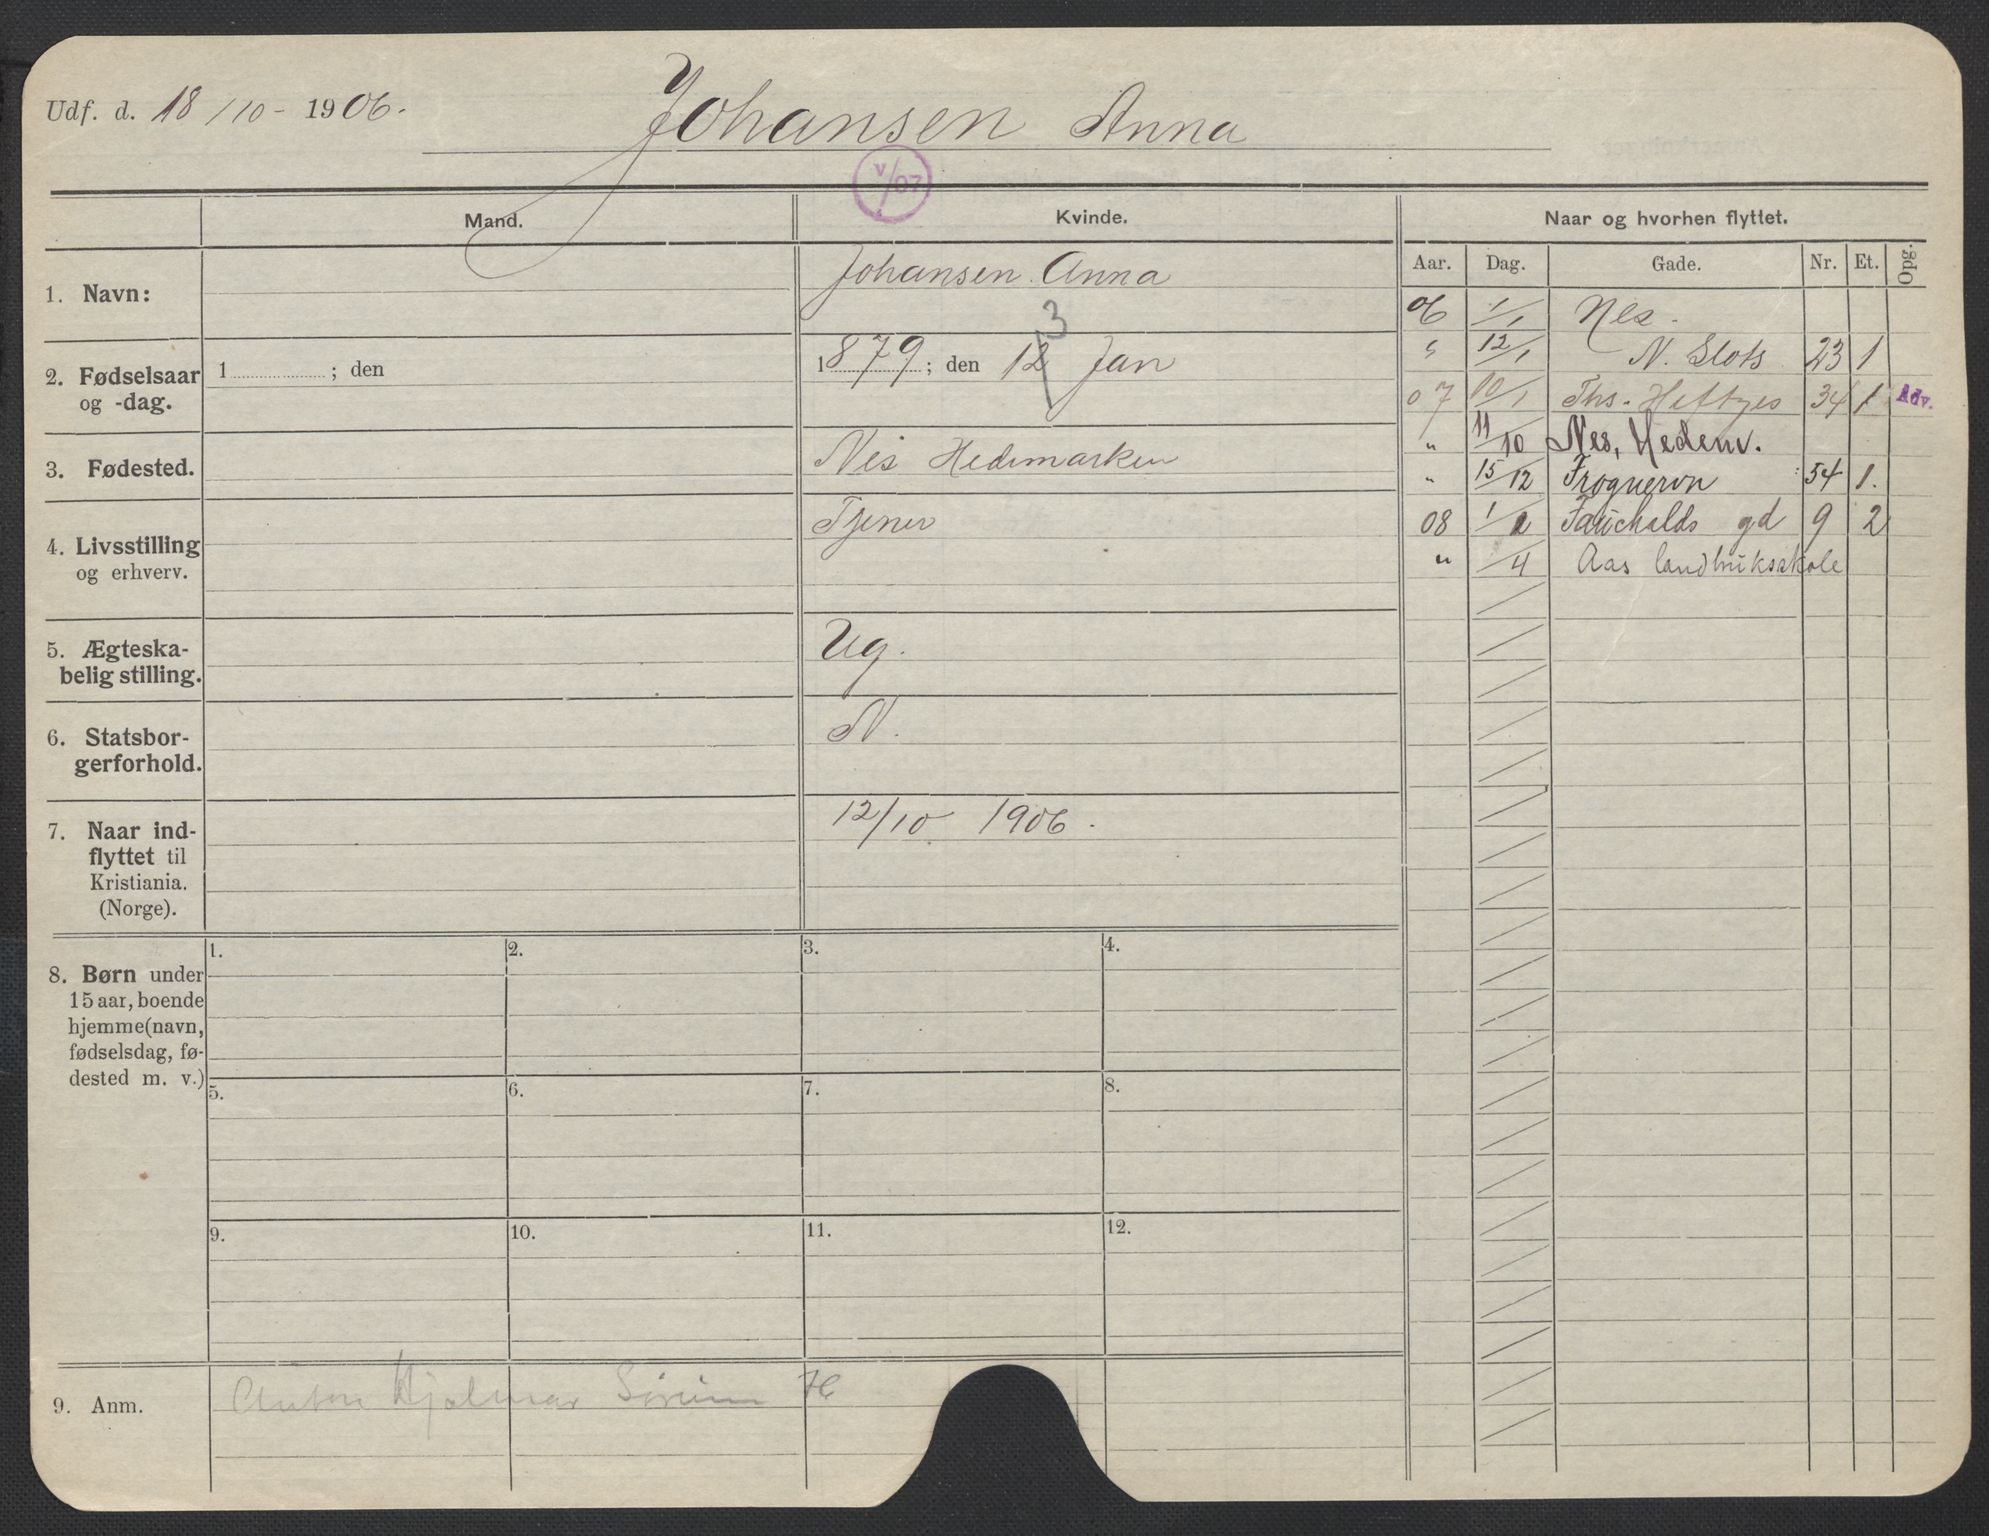 Udf. d. 18/10 - 1906.
Johansen Anna
V/07
Mand.
Kvinde.
Naar og hvorhen flyttet.
Aar. Dag. Gade. Nr. Et. Opg.
1. Navn:
Johansen Anna
2. Fødselsaar og -dag.
1 ; den
1879; den 12 Jan
3
3. Fødested.
Nes Hedemarken
4. Livsstilling og erhverv.
Tjener
5. Ægteska-
belig stilling.
Ug.
6. Statsbor-
gerforhold.
N.
7. Naar ind-
flyttet til
Kristiania.
(Norge).
12/10 1906.
06 1/1 Nes.
" 12/1 N. Slots 23 1
07 10/1 Ths. Heftyes 34 1 Adv.
" 11/10 Nes, Hedem.
" 15/12 Frognervn 54 1.
08 1/2 Fauchalds gd 9 2
" /4 Aas landbruksskole
8. Børn under
15 aar, boende
hjemme (navn,
fødselsdag, fø-
dested m. v.)
1. 2. 3. 4.
5. 6. 7. 8.
9. 10. 11. 12.
9. Anm.
Anton Hjalmar